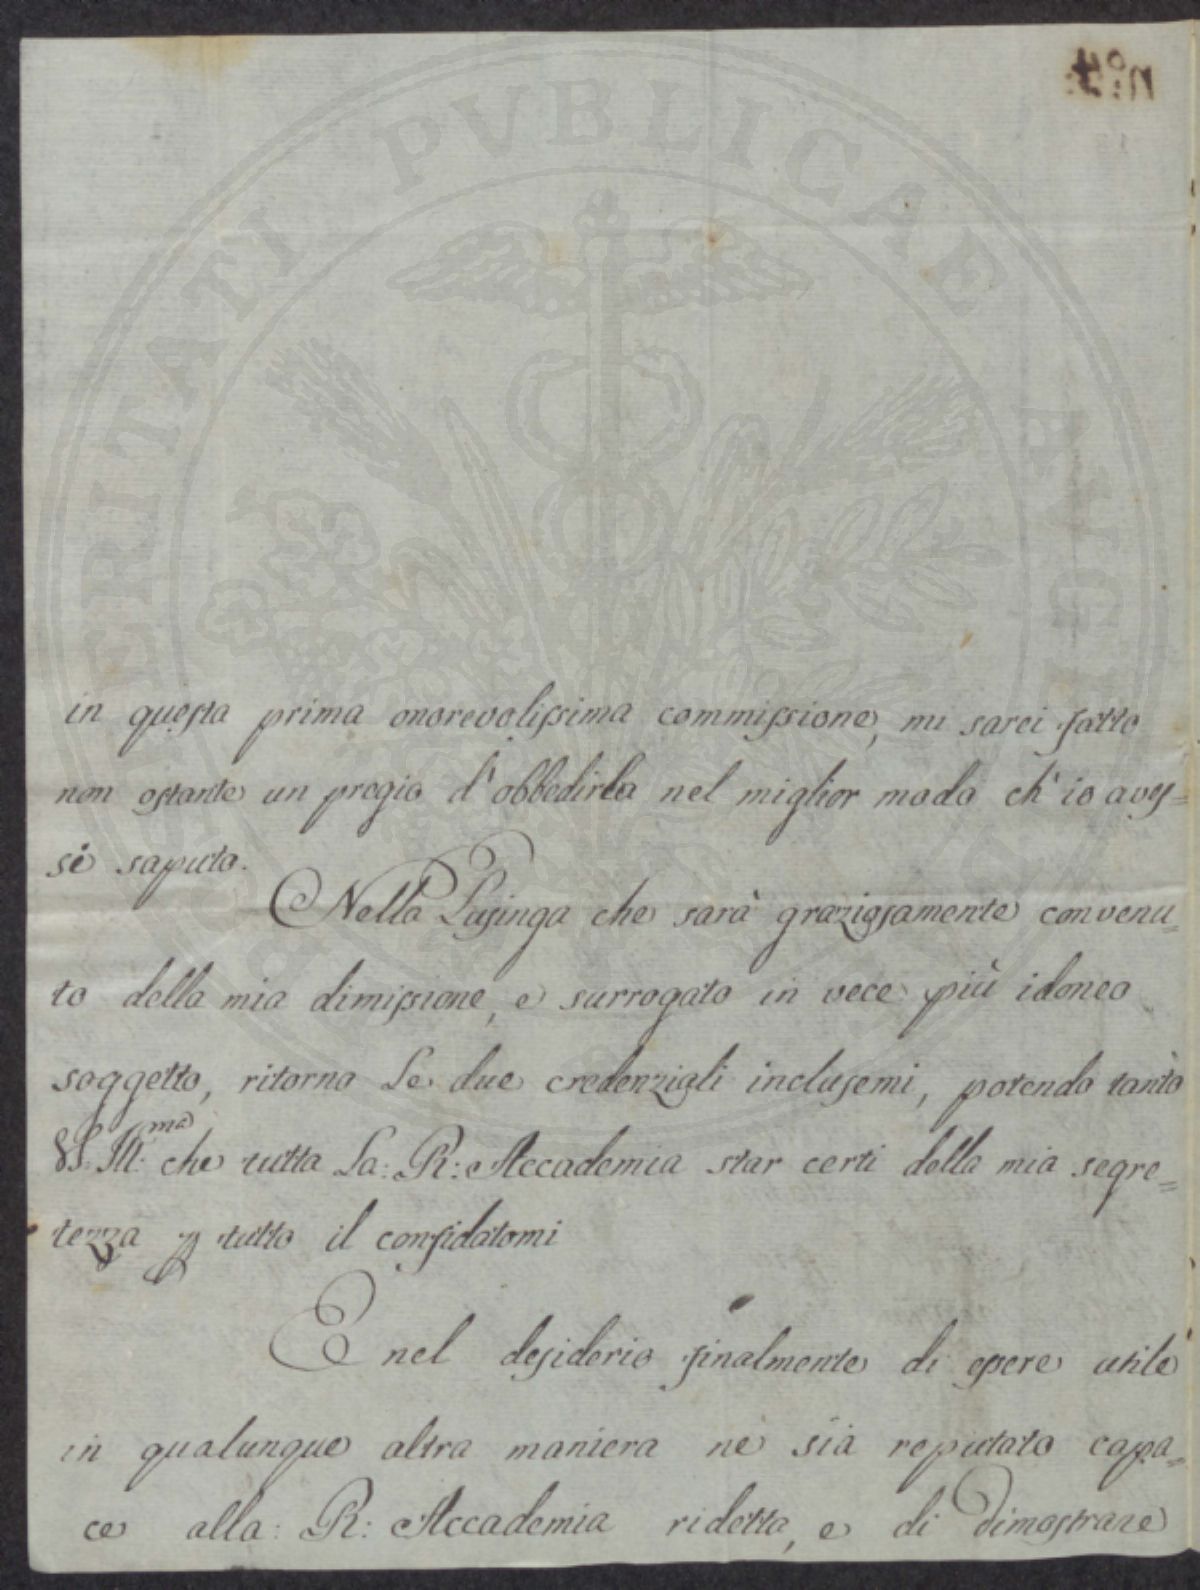 n.º 4.
in questa prima onorevolissima commissione, mi sarei fatto
non ostante un pregio d'obbedirla nel miglior modo ch'io aves=
se saputo.
Nella Lusinga che sarà graziosamente convenu=
to della mia dimissione, e surrogato in vece più idoneo
soggetto, ritorno Le due credenziali inclusemi, potendo tanto
VS: Ill:ma che tutta La: R: Accademia star certi della mia segre=
tezza p tutto il confidatomi
E nel desiderio finalmente di essere utile
in qualunque altra maniera ne sia reputato capa=
ce alla: R: Accademia ridetta, e di Dimostrare
PROSPERITATI PVBLICAE AVGENDAE